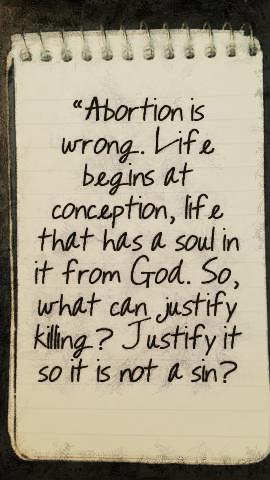 “Abortion is
wrong. Life
begins at
conception, life
that has a soul in
it from God. So,
what can justify
killing? Justify it
so it is not a sin?